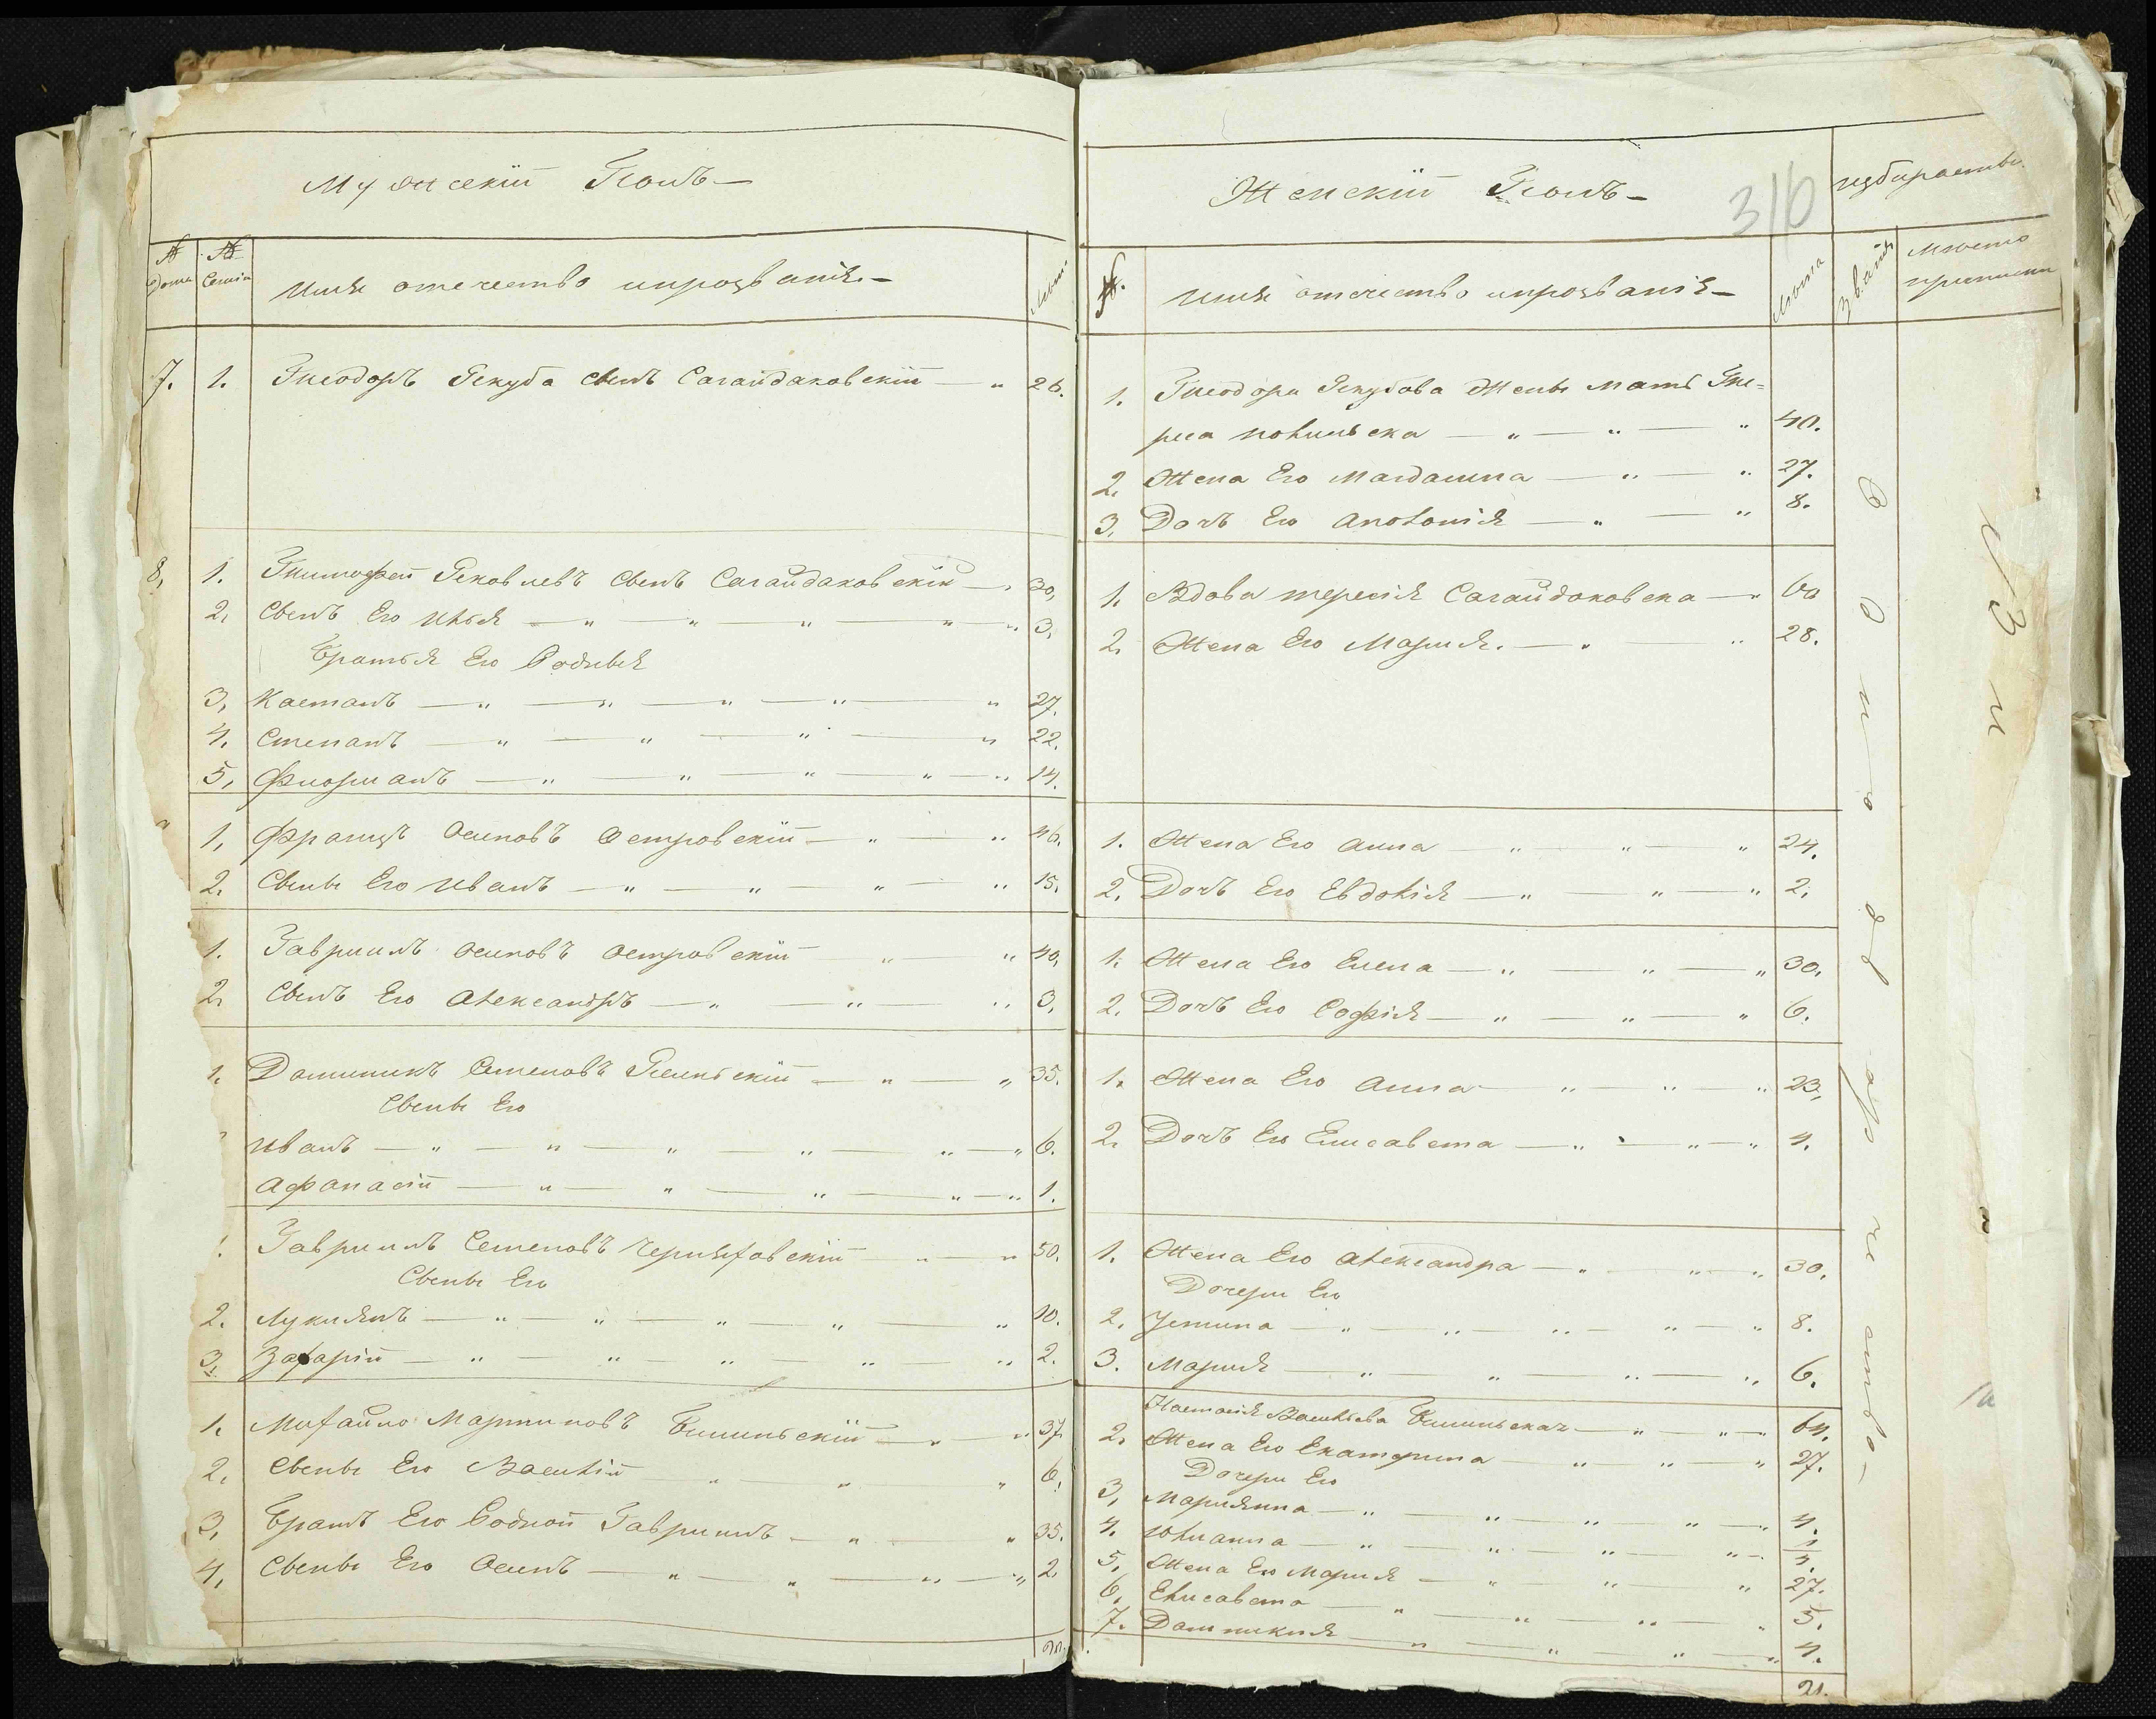 Мужескій Полъ
№ Дома
№ Семьи
Имя отечество ипрозваніе
Лета
7. 1. Теодоръ Якуба сынъ Сагайдаковскій 26.
8. 1. Тимофей Яковлевъ сынъ Сагайдаковскій 30.
2. Сынъ Его Илья 3.
Братья Его Родныя
3. Каетанъ 27.
4. Степанъ 22.
5. Флоріанъ 14.
1. Францъ Осиповъ Островскій 46.
2. Сынъ Его Иванъ 15.
1. Гавриилъ Осиповъ Островскій 40.
2. Сынъ Его Александръ 3.
1. Доминикъ Семеновъ 35.
Сыны Его
Иванъ 6.
Афанасій 1.
Гавриилъ Семеновъ 50.
Сыны Его
2. Лукиянъ 10.
3. Захарій 2.
1. Михайло Мартиновъ Билинскій 37.
2. Сынъ Его Василій 6.
3. Братъ Его Родной Гавриилъ 35.
4. Сынъ Его Осипъ 2.
Женскій Полъ
310
№
Имя отечество ипрозваніе
Лета
Званія
Место приписки
1. Теодора Якубова Жены Мать Те=
реса 40.
2. Жена Его Магдалина 27.
3. Дочь Его Аполонія 8.
1. Вдова Тересія Сагайдаковска 60
2. Жена Его Марія. 28.
1. Жена Его Анна 24.
2. Дочь Его Евдокія 2.
1. Жена Его Елена 30.
2. Дочь Его Софія 6.
1. Жена Его Анна 23.
2. Дочь Его Елисавета 4.
1. Жена Его Александра 30.
Дочери Его
2. Устина 8.
3. Марія 6.
Настасія Васильева Билинская 64.
2. Жена Его Екатерина 27.
Дочери Его
3. Маріянна 4.
4. Юлианна
5. Жена Его Марія 27.
6. Елисавета 5.
7. Доминикія 4.
21.
Однодворчество